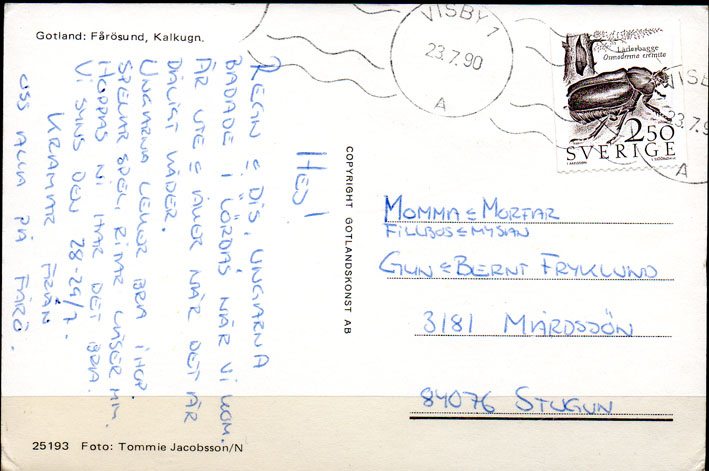 Gotland: Fårösund, Kalkugn.
VISBY 1
23.7.90
A
VISBY
23.7.9
A
Läderbagge
Osmoderma eremita
2.50
SVERIGE
HEJ!
REGN & DIS, UNGARNA
BADADE I LÖRDAS NÄR VI KOM.
ÄR UTE & ÅKER NÄR DET ÄR
DÅLIGT VÄDER.
UNGARNA LEKER BRA IHOP.
SPELAR SPEL, RITAR LÄSER MM.
HOPPAS NI HAR DET BRA.
VI SYNS DEN 28-29/7.
KRAMAR FRÅN
OSS ALLA PÅ FÅRÖ.
COPYRIGHT GOTLANDSKONST AB
MOMMA & MORFAR
FILLBUS & MYSAN
GUN & BERNT FRYKLUND
3181 MÅRDSJÖN
84076 STUGUN
25193 Foto: Tommie Jacobsson/N